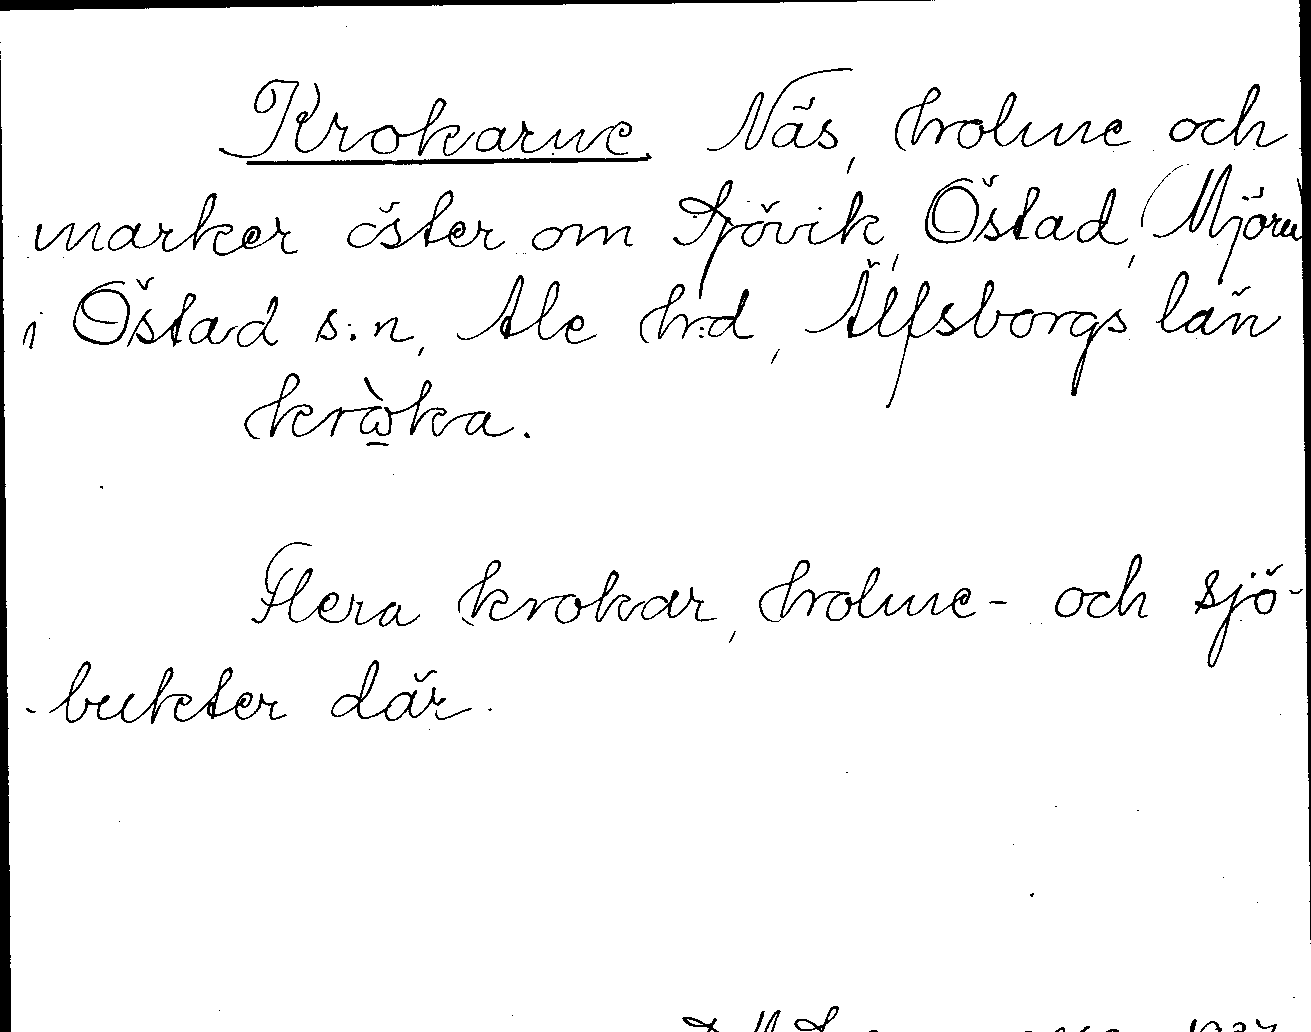 Krokarne. Näs, holme och
marker öster om Sjövik, Östad, (Mjörn)
i Östad s:n, Ale h:d, Älfsborgs län
kròka.
Flera krokar, holme- och sjö-
-bukter där.